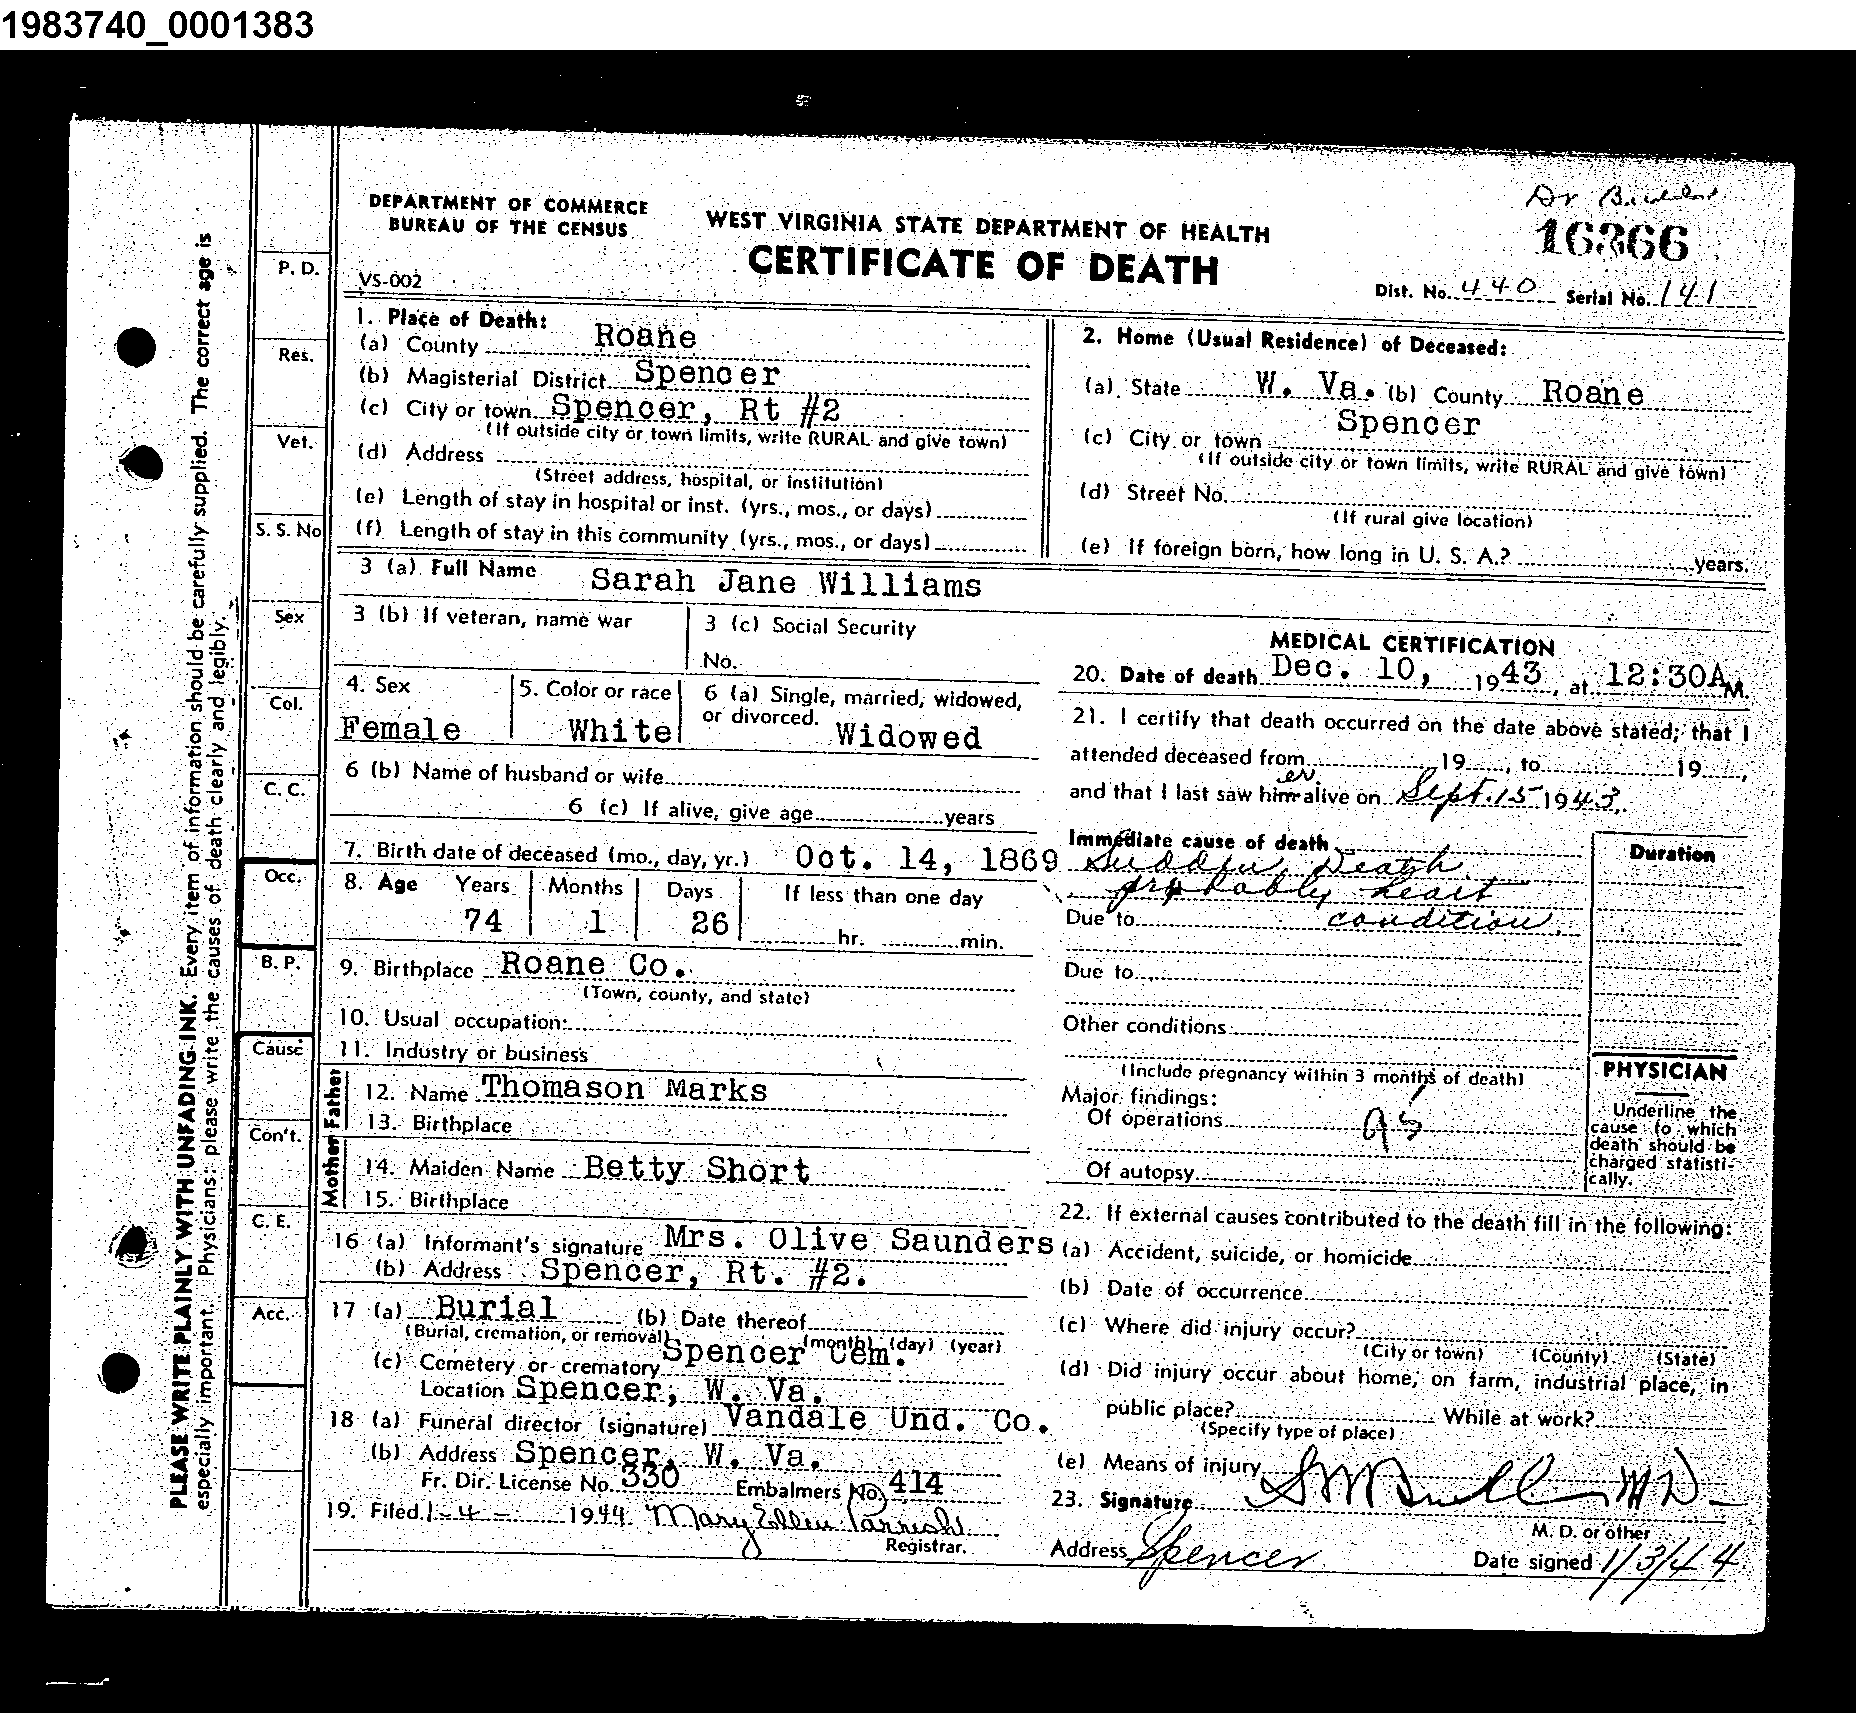 1983740_0001383
Dr
16366
DEPARTMENT OF COMMERCE
BUREAU OF THE CENSUS
VS-002
WEST VIRGINIA STATE DEPARTMENT OF HEALTH
CERTIFICATE OF DEATH
Dist. No. 440 Serial No. 141
PLEASE WRITE PLAINLY WITH UNFADING INK. Every item of information should be carefully supplied. The correct age is
especially important. Physicians: please write the causes of death clearly and legibly.
P. D.
Res.
Vet.
S. S. No
Sex
Col.
C. C.
Occ.
B. P.
Cause
Con't.
C. E.
Acc.
1. Place of Death:
(a) County Roane
(b) Magisterial District Spencer
(c) City or town Spencer, Rt #2
(If outside city or town limits, write RURAL and give town)
(d) Address
(Street address, hospital, or institution)
(e) Length of stay in hospital or inst. (yrs., mos., or days)
(f) Length of stay in this community (yrs., mos., or days)
2. Home (Usual Residence) of Deceased:
(a) State W. Va. (b) County Roane
(c) City or town Spencer
(If outside city or town limits, write RURAL and give town)
(d) Street No.
(If rural give location)
(e) If foreign born, how long in U. S. A.? years.
3 (a) Full Name Sarah Jane Williams
3 (b) If veteran, name war
3 (c) Social Security
No.
4. Sex
Female
5. Color or race
White
6 (a) Single, married, widowed,
or divorced.
Widowed
6 (b) Name of husband or wife
6 (c) If alive, give age years
7. Birth date of deceased (mo., day, yr.) Oct. 14, 1869
8. Age Years Months Days If less than one day
74 1 26 hr. min.
9. Birthplace Roane Co.
(Town, county, and state)
10. Usual occupation:
11. Industry or business
Father
12. Name Thomason Marks
13. Birthplace
Mother
14. Maiden Name Betty Short
15. Birthplace
16 (a) Informant's signature Mrs. Olive Saunders
(b) Address Spencer, Rt. #2.
17 (a) Burial (b) Date thereof
(Burial, cremation, or removal) (month) (day) (year)
(c) Cemetery or crematory Spencer Cem.
Location Spencer, W. Va.
18 (a) Funeral director (signature) Vandale Und. Co.
(b) Address Spencer, W. Va.
Fr. Dir. License No. 330 Embalmers No. 414
19. Filed 1-4- 1944 Mary Ellen Parrish
Registrar.
MEDICAL CERTIFICATION
20. Date of death Dec. 10, 1943, at 12:30A M.
21. I certify that death occurred on the date above stated; that I
attended deceased from 19 , to 19 ,
er
and that I last saw him alive on Sept. 15 1943.
Immediate cause of death
Sudden Death
probably heart
Due to condition
Due to
Other conditions
(Include pregnancy within 3 months of death)
Major findings:
Of operations
Of autopsy
Duration
PHYSICIAN
Underline the
cause to which
death should be
charged statisti-
cally.
95
22. If external causes contributed to the death fill in the following:
(a) Accident, suicide, or homicide
(b) Date of occurrence
(c) Where did injury occur?
(City or town) (County) (State)
(d) Did injury occur about home, on farm, industrial place, in
public place? While at work?
(Specify type of place)
(e) Means of injury
23. Signature M D
M. D. or other
Address Spencer Date signed 1/3/44